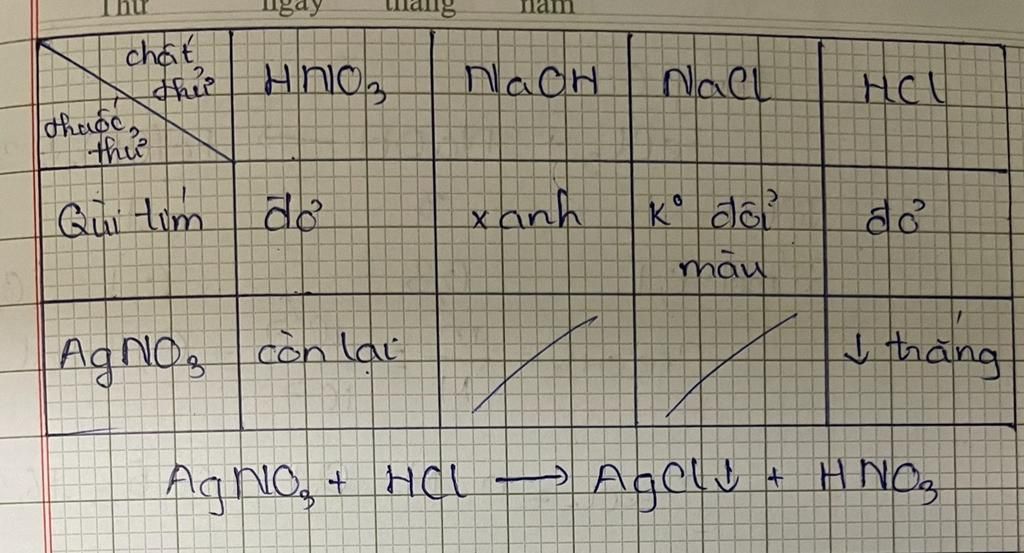 Thứ ngày tháng năm
chất thử
thuốc thử
HNO₃ NaOH NaCl HCl
Qùi tím đỏ xanh K° đổi màu đỏ
AgNO₃ còn lại ↓ trắng
AgNO₃ + HCl → AgCl↓ + HNO₃